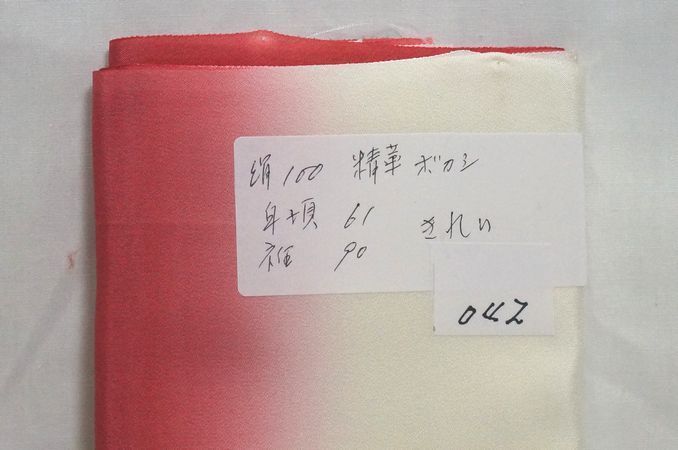 絹100 精華 ボカシ
身頃 61 きれい
衽 90
042